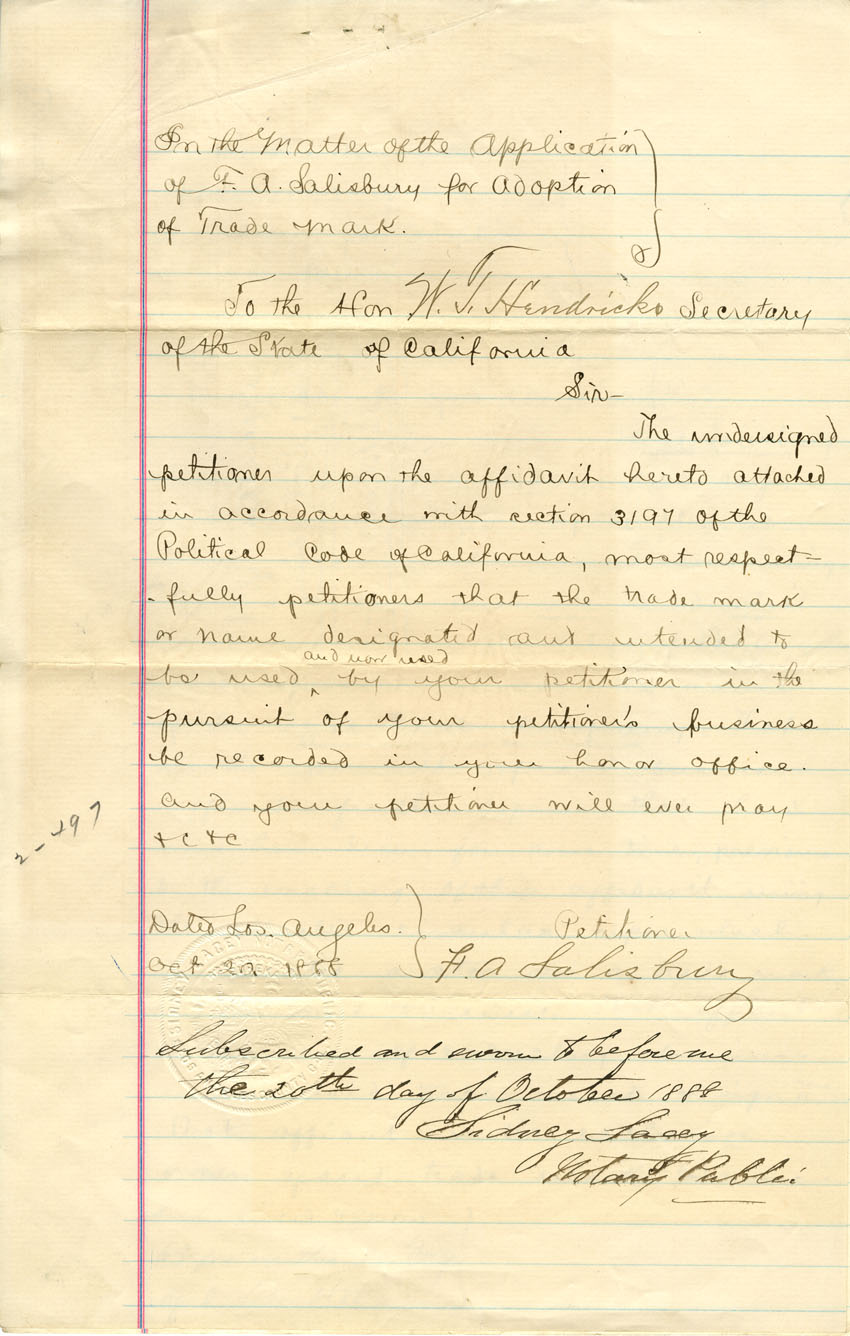 In the Matter of the Application
of F. A. Salisbury for Adoption
of Trade Mark.
To the Hon W. T. Hendricks Secretary
of the State of California
Sir-
The undersigned
petitioner upon the affidavit hereto attached
in accordance with section 3197 of the
Political Code of California, most respect=
-fully petitioners that the trade mark
or name designated and intended to
and now used
be used ^ by your petitioner in the
pursuit of your petitioner's business
be recorded in your honor office.
and your petitioner will ever pray
&c &c
2-497
Dated Los. Angeles. Petitioner
Oct 20 1888 F. A Salisbury
Subscribed and sworn to before me
this 20th day of October 1888
Sidney Lacey
Notary Public